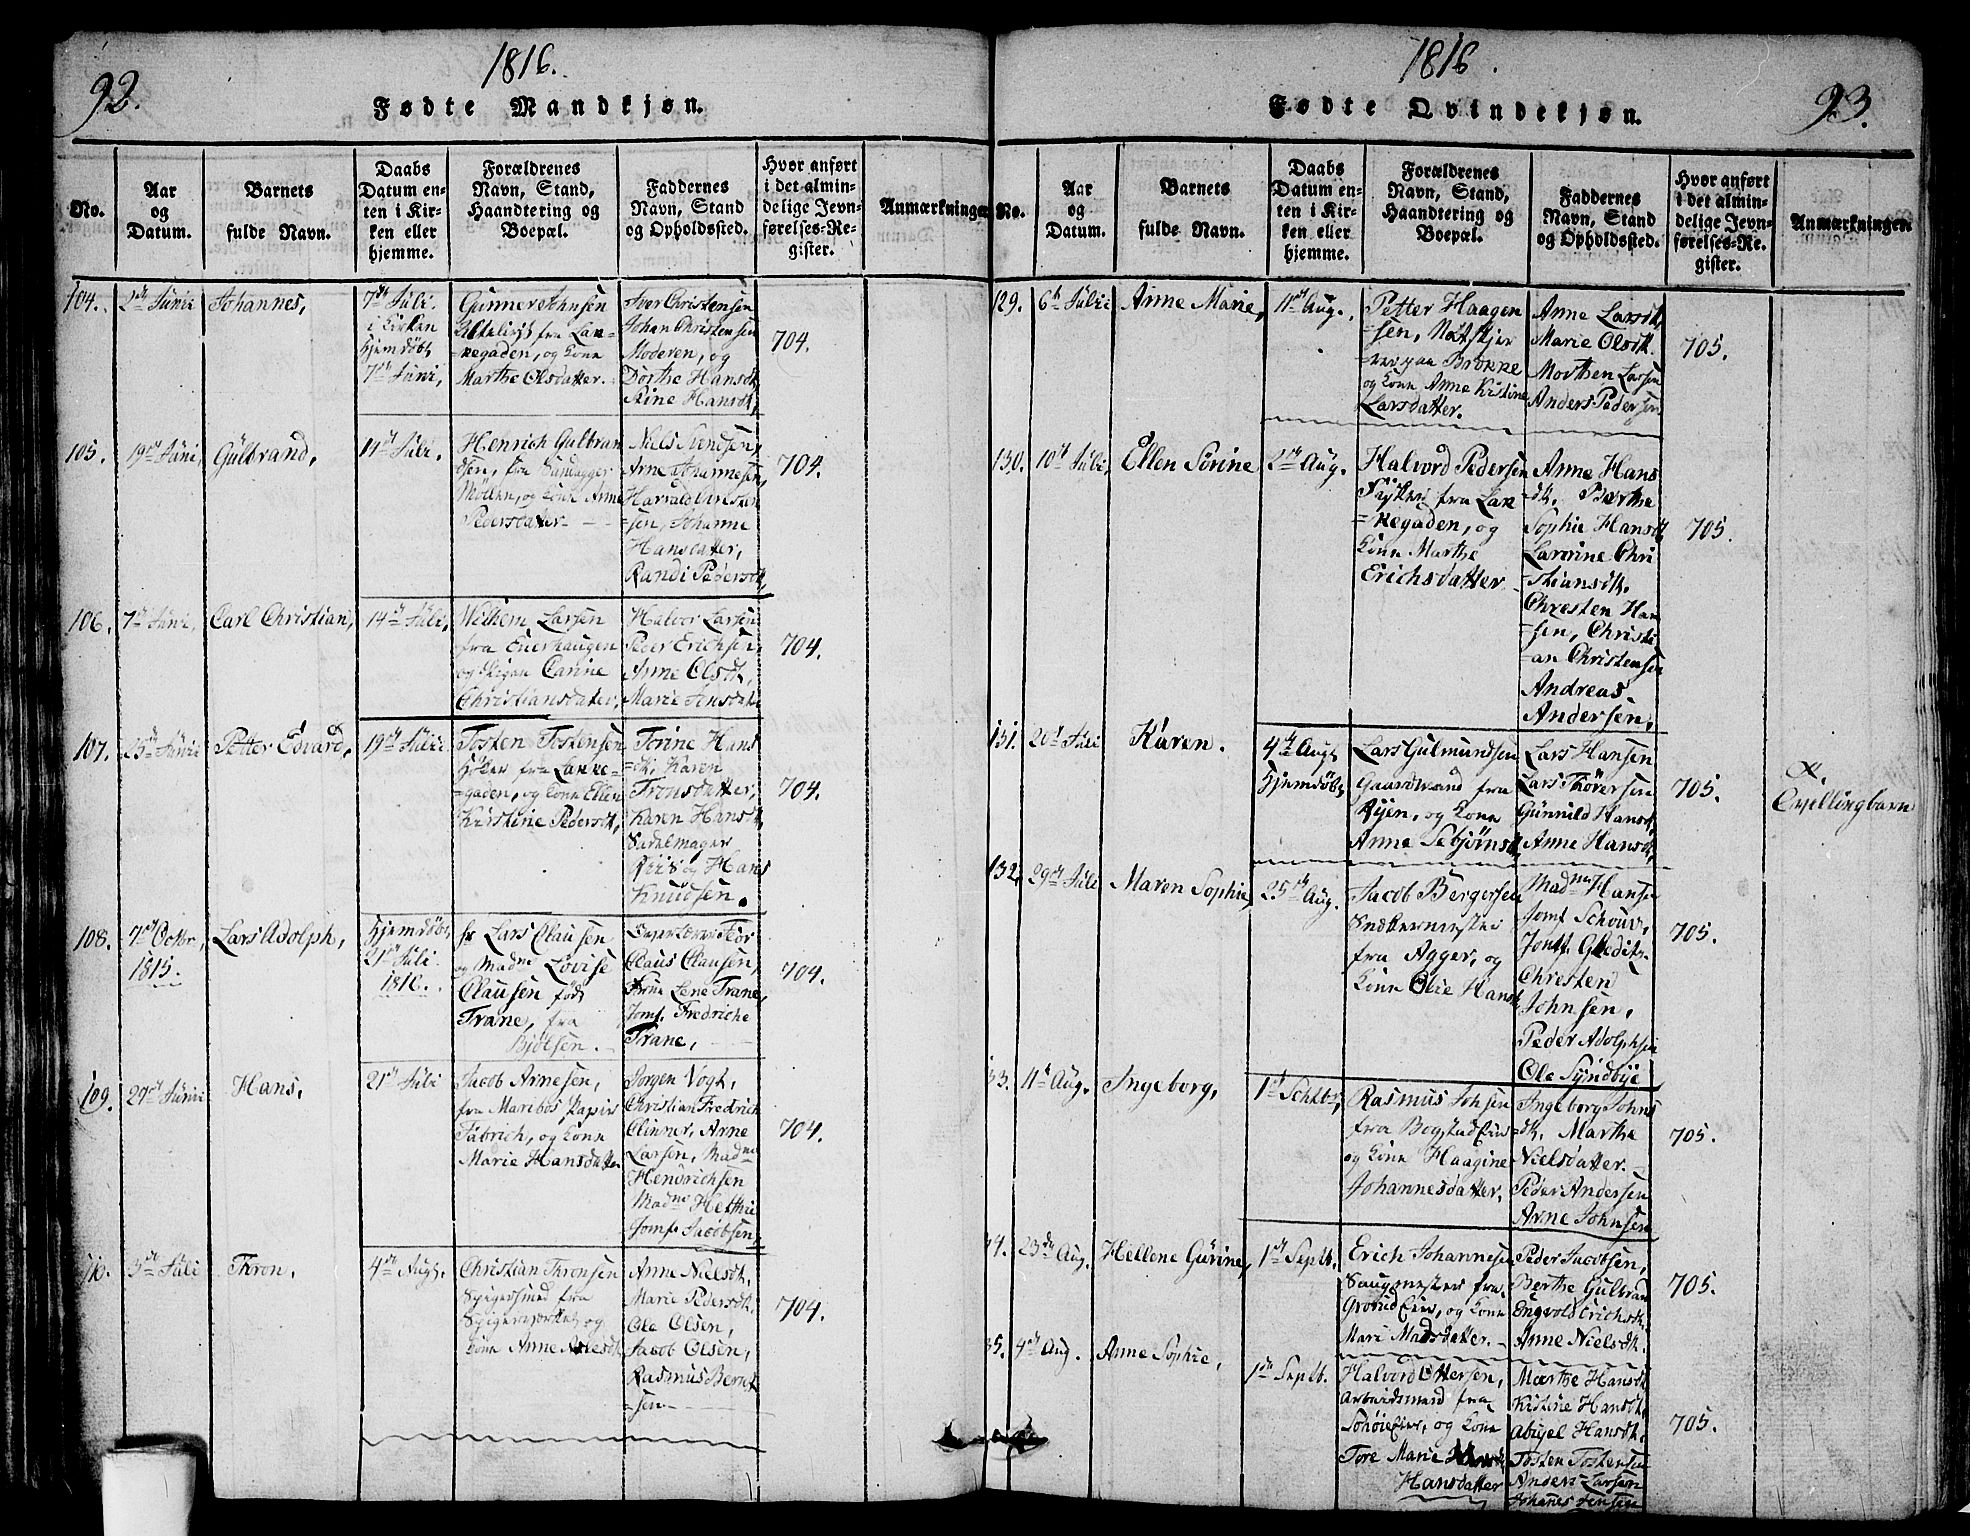 92.
1816.
Fødte Mandkjøn.
No.
Aar
og
Datum.
Barnets
fulde Navn.
Daabs
Datum en-
ten i Kir-
ken eller
hjemme.
Forældrenes
Navn, Stand,
Haandtering og
Boepæl.
Faddernes
Navn, Stand
og Opholdssted.
Hvor anført
i det almin-
delige Jevn-
førelses-Re-
gister.
Anmærkninger
104.
2den Juni
Johannes,
7de Juli
i Kirken
hjemdøbt
7de Juni,
Gunner Johnsen
fra Lak-
kegaden, og Kone
Marthe Olsdatter.
Iver Christensen
Johan Christensen
Moderen, og
Dorthe Hansdt,
Stine Hansdt,
704.
105.
19de Juni,
Gulbrand,
14de Juli,
Henrich Gulbran
sen, fra
Møllen, og Kone Anne
Pedersdatter
Niels Svendsen,
Arne Johannesen,
Harrald Christen
=sen, Johanne
Hansdatter,
Randi Pedersdt,
704.
106.
7de Juni,
Carl Christian,
14de Juli,
Wilhem Larsen
fra Enerhaugen
og Pigen Carine
Christiansdatter,
Halvor Larsen
Peder Erichsen,
Anne Olsdt,
Marie Jensdt,
704.
107.
25de Juni
Petter Edvard,
19de Juli
Tosten Tostensen
fra Lakke-
gaden, og Kone Ellen
Kristine Pedersdt,
Torine Hans
=dt, Karen
Tronsdatter,
Karen Hansdt
Sadelmager
Riis og Hans
Knudsen.
704.
108.
7de Octbr,
1815.
Lars Adolph,
hjemdøbt,
21de Juli
1816.
Hr Lars Clausen
og Madme Lovise
Clausen født
Trane, fra
Bjølsen.
Claus Clausen,
Frue Lene Trane,
Jomf. Fredriche
Trane,
704.
109.
29de Juni
Hans,
21de Juli
Jacob Arnesen,
fra Maribos Papir
Fabrich, og Kone
Marie Hansdatter
Jørgen Vogt,
Christian Fredrich
Clinner, Arne
Larsen, Madme
Hendrichsen
Madme Hetthie
Jomf. Jacobsen,
704.
110.
3de Juli
Thron,
4de Augt,
Christian Thronsen
Spigersmed fra
Spigerverket og
Kone Anne Nielsdt
Anne Nielsdt,
Marie Pedersdt,
Ole Olsen,
Jacob Olsen,
Rasmus Bernt
=sen
704.
1816.
93.
Fødte Qvindekjøn.
No.
Aar
og
Datum.
Barnets
fulde Navn.
Daabs
Datum en-
ten i Kir-
ken eller
hjemme.
Forældrenes
Navn, Stand,
Haandtering og
Boepæl.
Faddernes
Navn, Stand
og Opholdssted.
Hvor anført
i det almin-
delige Jevn-
førelses-Re-
gister.
Anmærkninger
129.
6te Juli
Anne Marie,
11te Aug.
Petter Haagen
=sen,
paa Brokke
og Kone Anne Kistine
Larsdatter.
Anne Larsdt,
Marie Olsdt.
Morthen Larsen
Anders Pedersen
705.
130.
10de Juli,
Ellen Sorine
2de Aug.
Halvord Pedersen
fra Lak
=kegaden, og
Kone Marthe
Erichsdatter
Anne Hans
=dt, Marthe
Sophie Hansdt
Lavrine Chri
=stiansdt,
Chresten Han
=sen, Christi
=an Christensen
Andreas
Andersen,
705.
131.
20de Juli
Karen.
4de Augt
hjemdøbt,
Lars Gulmundsen
Gaardmand fra
Ryen, og Kone
Anne Sebjørnsdt,
Lars Hansen
Lars Thoversen
Gunnild Hansdt,
Anne Hansdt,
705.
X.
Tvillingbarn
132.
29de Juli
Maren Sophie,
25de Aug.
Jacob Bergersen
Snedkermester
fra Agger, og
Kone Olie Hansdt
Madme Hansen
Jomf. Schouw,
Jomf. Gleditz.
Christen
Johnsen,
Peder Adolphsen
Ole Syndbye
705.
33.
11te Aug.
Ingeborg,
1ste Sehtbr,
Rasmus Johsen
fra Bogstad Eier
og Kone Haagine
Johannesdatter,
Ingeborg Johns
=dt, Marthe
Nielsdatter.
Peder Andersen
Arne Johnsen
705.
34.
23de Aug.
Hellene Gurine,
1ste Septb.
Erich Johannesen
Saugmester fra
Grorud Eier, og Kone
Mari Madsdatter.
Peder Jacobsen,
Berthe Gulbran
Engvold Erichsdt.
Anne Nielsdt.
705.
35.
4de Aug.
Anne Sophie,
1ste Septb.
Halvord Ottersen,
Arbeidsmand fra
og Kone
Tore Marie
Hansdatter
Marthe Hansdt,
Kistine Hansdt,
Abigel Hansdt.
Tosten Tostensen
Anders Larsen
Johanes Jensen
705.